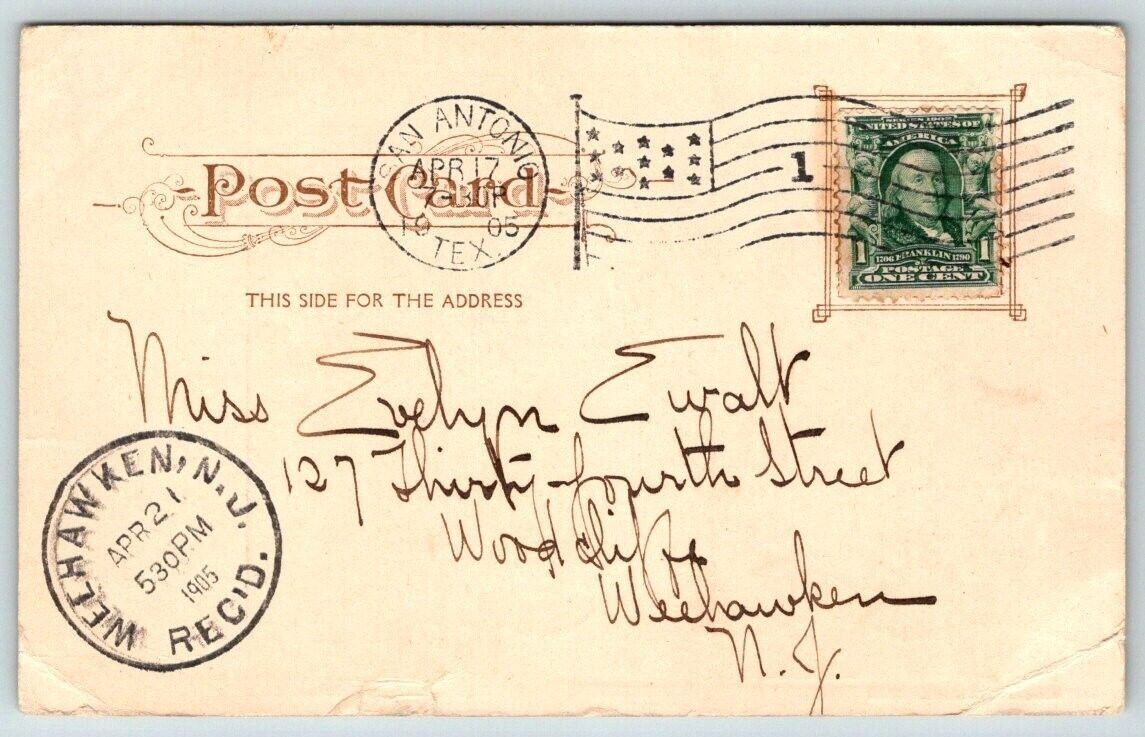 Post Card
SAN ANTONIO
APR 17
7-30P
19 05
TEX.
1
SERIES 1902
UNITED STATES OF
AMERICA
1 1
1706 FRANKLIN 1790
POSTAGE
ONE CENT
THIS SIDE FOR THE ADDRESS
Miss Evelyn Ewalt
127 Thirty-fourth Street
Woodcliffe
Weehawken
N. J.
WEEHAWKEN, N.J.
APR 21
530 PM
1905
REC'D.